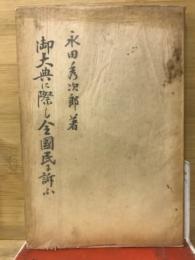 永田秀次郎著
御大典に際し全國民に訴ふ